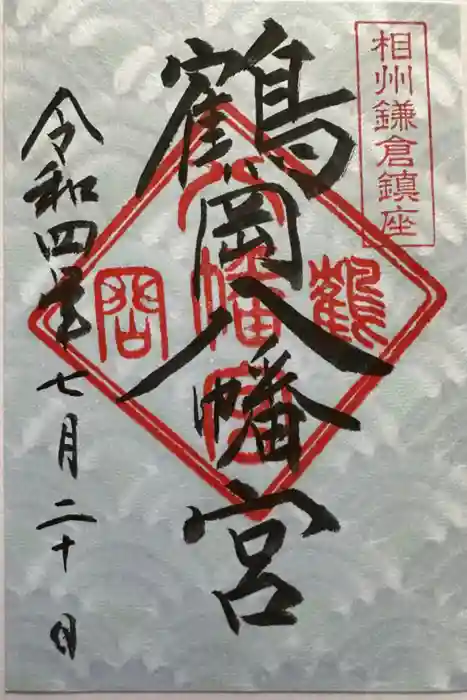 相州鎌倉鎮座
鶴岡八幡宮
鶴
岡
八幡宮
令和四年七月二十日